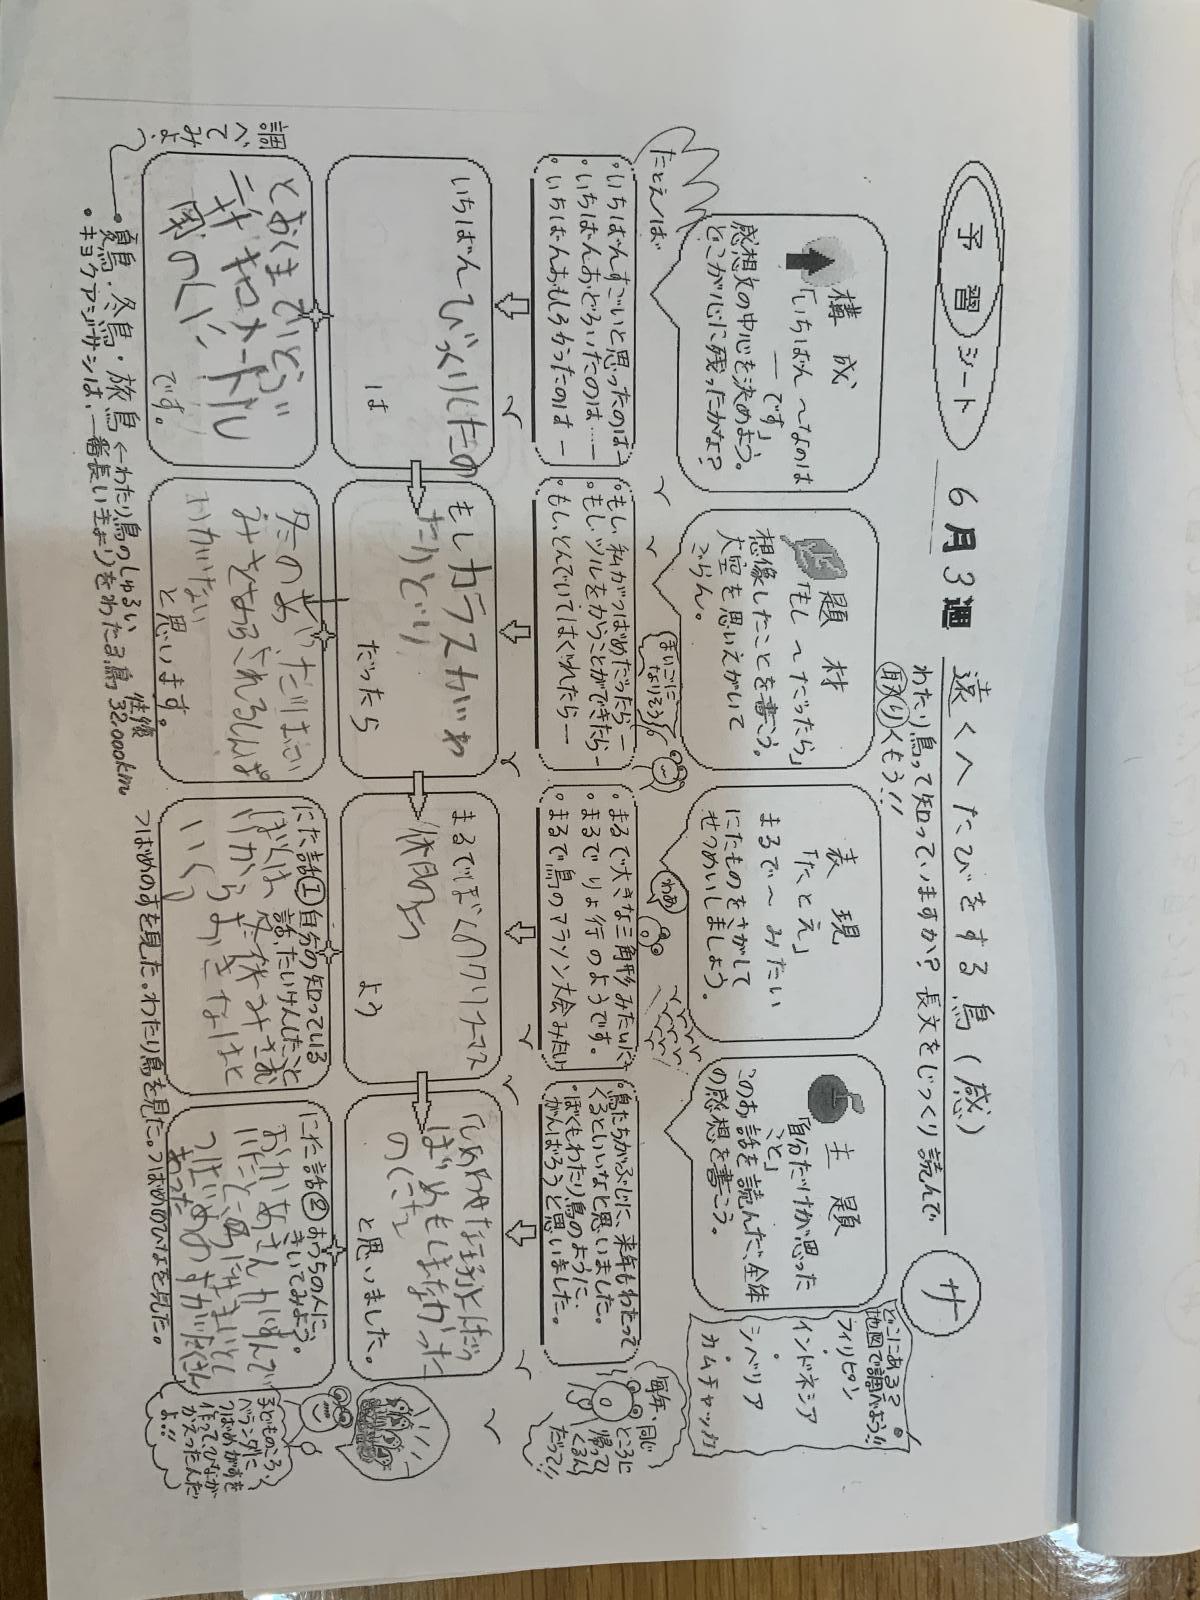 予習シート
6月3週
遠くへたびをする鳥(感)
サ
わたり鳥って知っていますか?長文をじっくり読んで
取りくもう!!
どこにある?
地図で調べよう!!
フィリピン
・インドネシア
・シベリア
・カムチャッカ
構成
「いちばん〜なのは
―です」
感想文の中心を決めよう。
どこが心に残ったかな?
題材
「もし〜だったら」
想像したことを書こう。
大空を思いえがいて
ごらん。
表現
「たとえ」
まるで〜みたい
にたものをさがして
せつめいしましょう。
主題
「自分だけが思った
こと」
このお話を読んだ、全体
の感想を書こう。
たとえば
まいごに
なりそう
わあ
・いちばんすごいと思ったのは―
・いちばんおどろいたのは…―
・いちばんおもしろかったのは―
・もし、私がつばめだったら―
・もし、ツルをかうことができたら―
・もし、とんでいてはぐれたら―
・まるで大きな三角形みたいに
・まるでりょ行のようです。
・まるで鳥のマラソン大会みたい
・鳥たちがぶじに、来年もわたって
くるといいなと思いました。
・ぼくもわたり鳥のように、
がんばろうと思いました。
毎年、同じ
ところに
帰って
くるん
だって!!
いちばんびっくりしたの
は
もしカラスがわ
たりどり
だったら
まるでぼくのクリスマス
休日の
よう
のこたえ
と思いました。
とおくまでいどう
キロメートル
です。
冬のあいだ
と思います。
にた話①自分の知っている
話、たいけんしたこと
ぼくは
にた話②おうちの人に、
きいてみよう。
おかあさんがすんで
つばめのすがたくさん
あった
子どものころ、
ベランダに
つばめがすを
作って、ひなが
かえったんだ
よ!!
調べてみよう
・夏鳥・冬鳥・旅鳥←わたり鳥のしゅるい
・キョクアジサシは、一番長いきょりをわたる鳥 往復32,000km
つばめのすを見た。わたり鳥を見た。つばめのひなを見た。